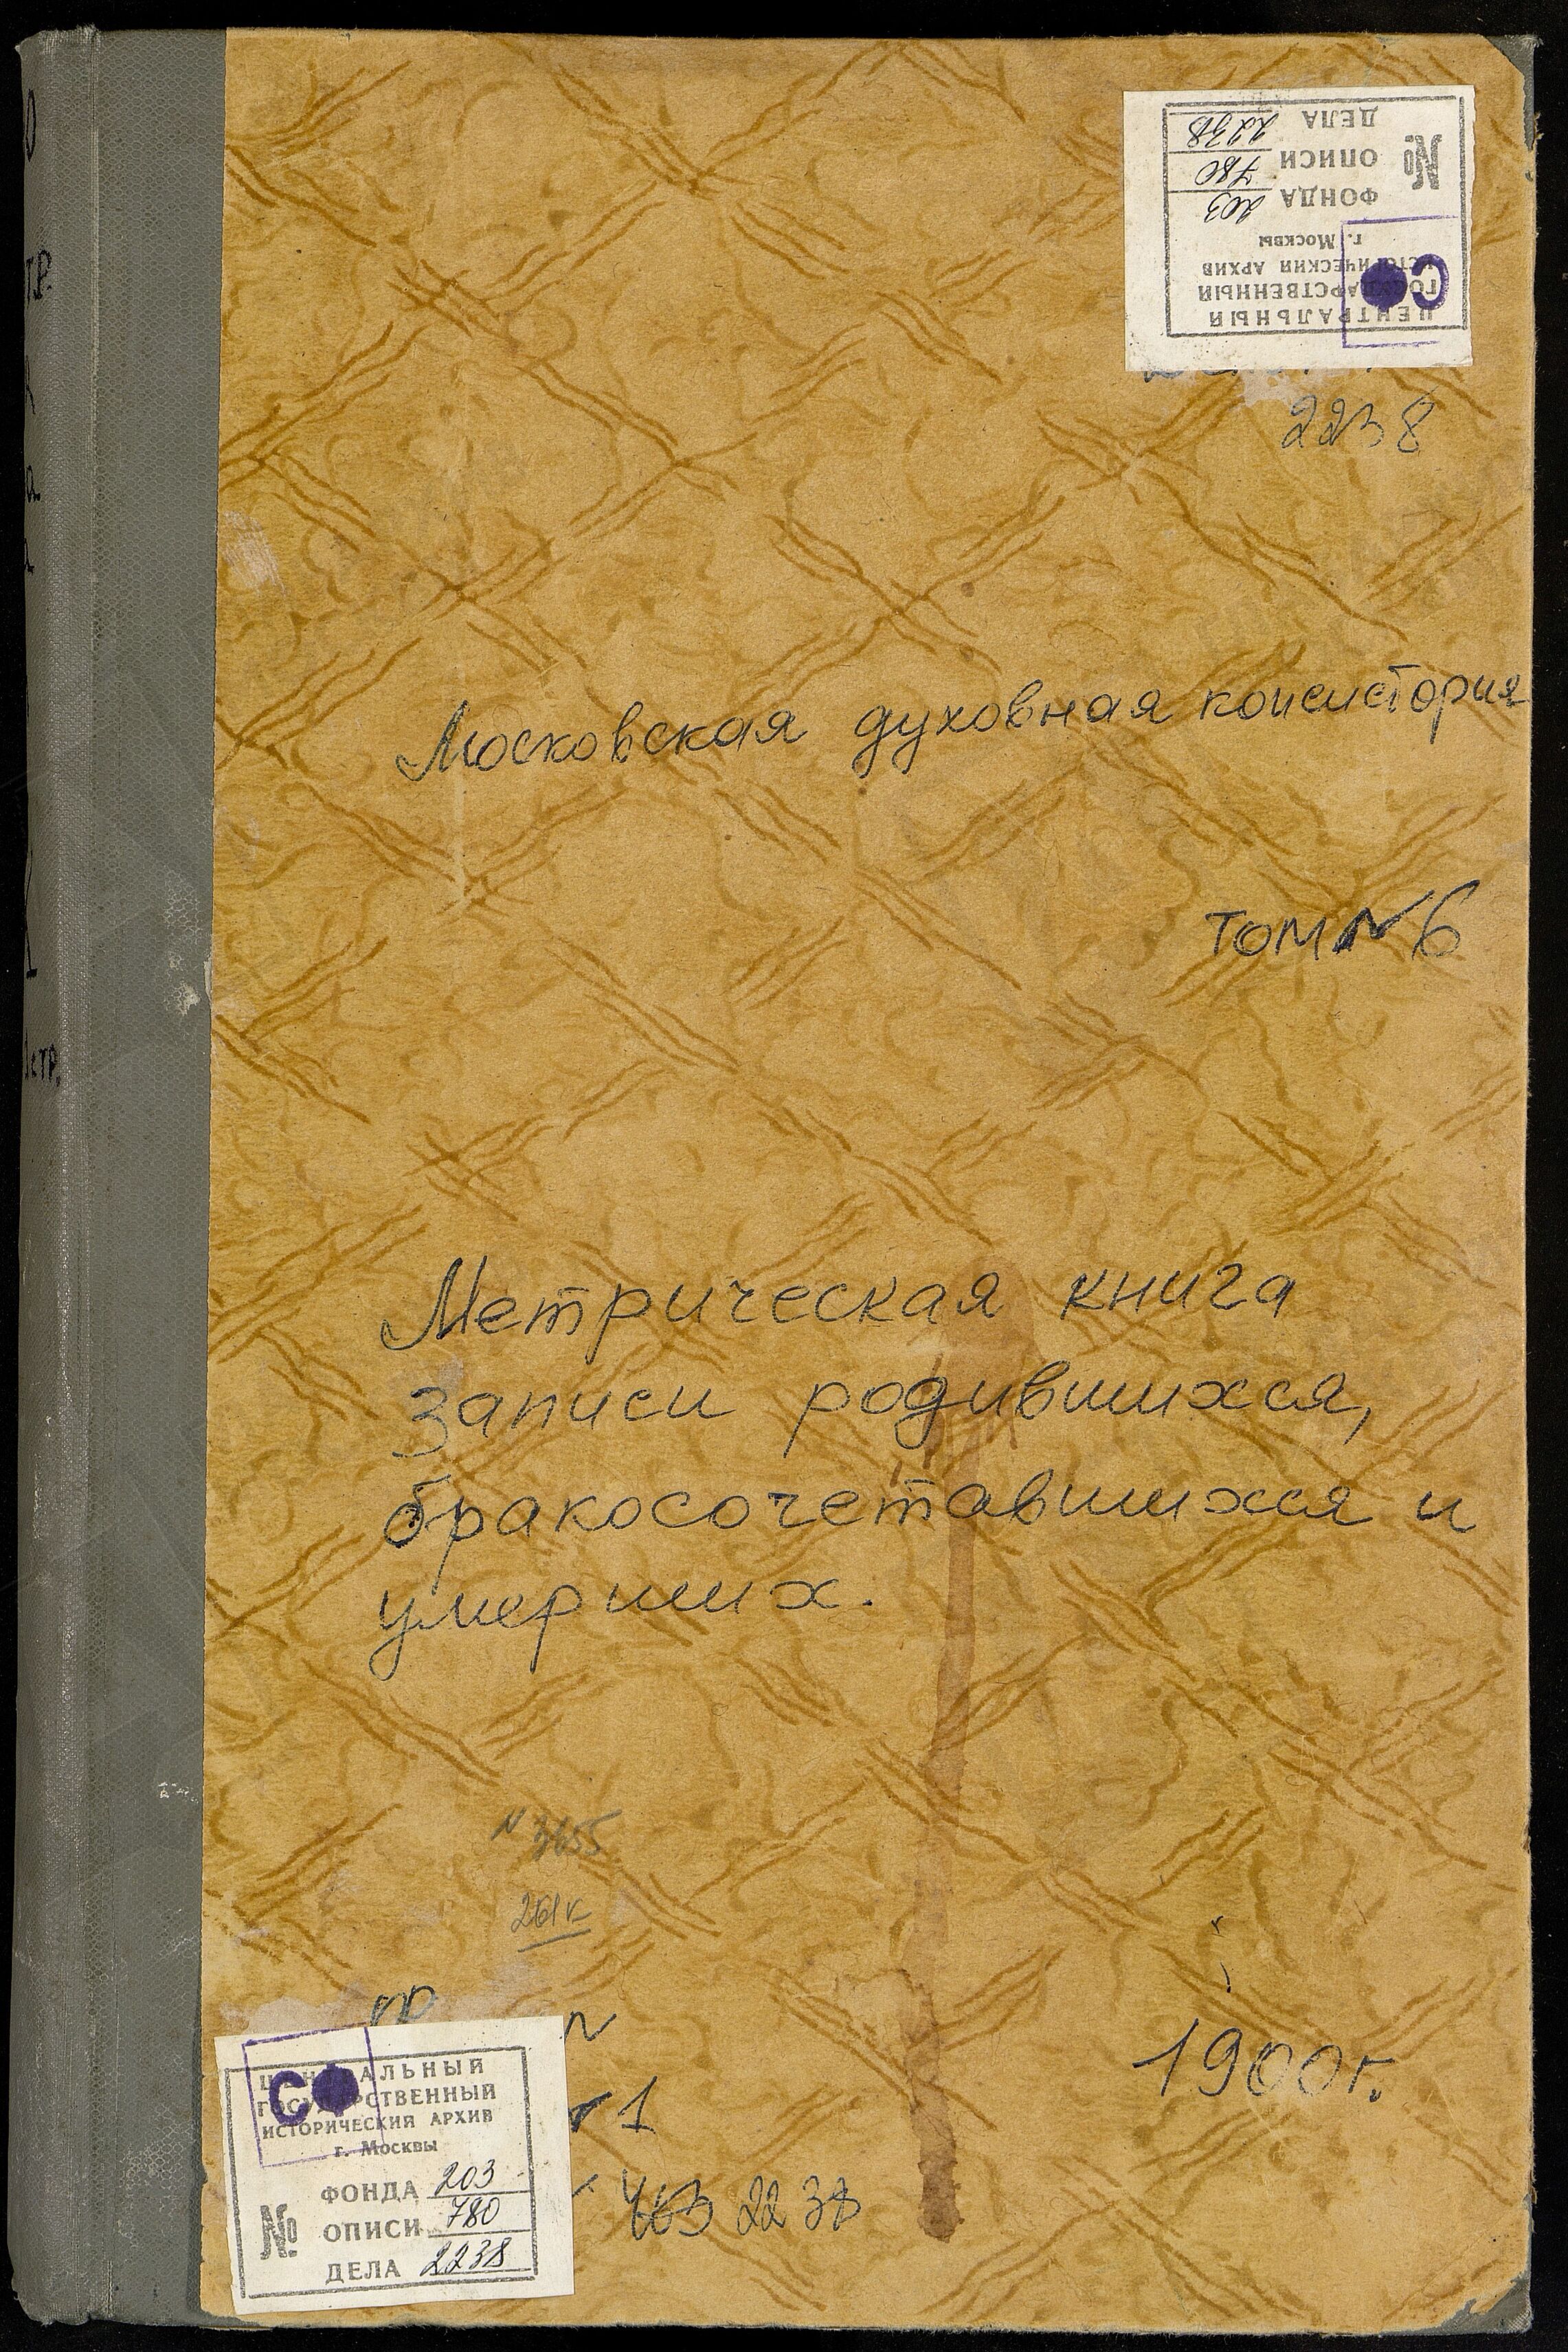 ЦЕНТРАЛЬНЫЙ
ГОСУДАРСТВЕННЫЙ
ИСТОРИЧЕСКИЙ АРХИВ
г. Москвы
№
ФОНДА 203
ОПИСИ 780
ДЕЛА 2238
СФ
2238
Московская духовная консистория
том № 6
Метрическая книга
записи родившихся,
бракосочетавшихся и
умерших.
N 3655
1900 г.
ЦЕНТРАЛЬНЫЙ
ГОСУДАРСТВЕННЫЙ
ИСТОРИЧЕСКИЙ АРХИВ
г. Москвы
СФ
№
ФОНДА 203
ОПИСИ 780
ДЕЛА 2238
1
2238